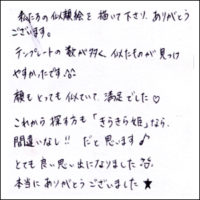 私たちの似顔絵を描いて下さり、ありがとう
ございます。
テンプレートの数が多く、似たものが見つけ
やすかったです
顔もとっても似ていて、満足でした♡
これから探す方も「きらきら姫」なら、
間違いなし!! だと思います♪
とても良い思い出になりました
本当にありがとうございました★